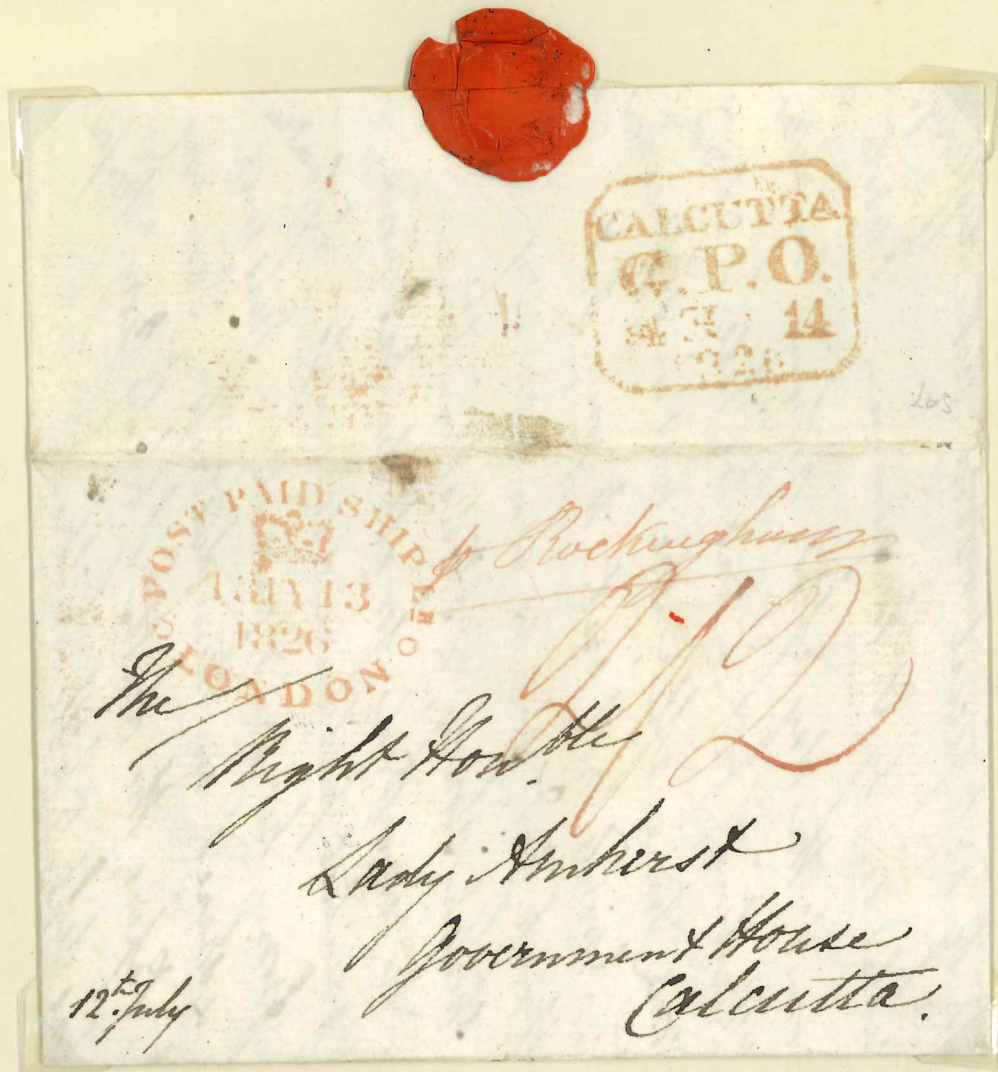 CALCUTTA
G.P.O.
14
POST PAID SHIP LR
13
1826
LONDON
Rockingham
The
Right Hon.ble
Lady Amherst
Government House
Calcutta.
12th July